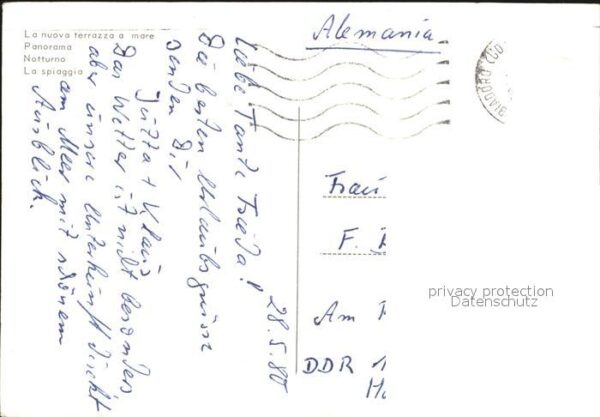 La nuova terrazza a mare
Panorama
Notturno
La spiaggia
Alemania
28.5.80
Liebe Tante Frieda!
Die besten Urlaubsgrüsse
senden Dir
Jutta + Klaus
Das Wetter ist nicht besonders
aber unsere Unterkunft direkt
am Meer mit schönem
Ausblick.
Frau
F.
Am
DDR
privacy protection
Datenschutz